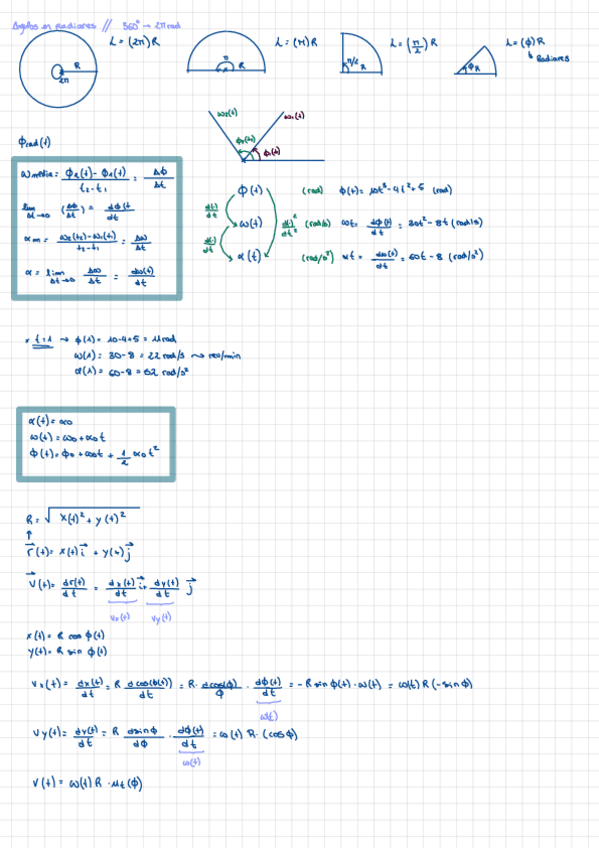 Ángulos en Radianes // 360° → 2π rad
L = (2π) R
R
2π
L = (π) R
π
R
L = (π/2) R
π/2
R
L = (φ) R
Radianes
φ
R
ω₂(t)
ω₁(t)
φ₂(t)
φ₁(t)
φrad(t)
ωmedia = φ₂(t) - φ₁(t) / t₂ - t₁ = Δφ/Δt
lim Δt→0 (Δφ/Δt) = dφ(t)/dt
αm = ω₂(t₂) - ω₁(t₁) / t₂ - t₁ = Δω/Δt
α = lim Δt→0 Δω/Δt = dω(t)/dt
φ(t) (rad) φ(t) = 10t³ - 4t² + 5 (rad)
d(·)/dt
ω(t) d(·)²/dt² (rad/s) ωt = dφ(t)/dt = 30t² - 8t (rad/s)
d(·)/dt
α(t) (rad/s²) αt = dω(t)/dt = 60t - 8 (rad/s²)
* t=1 → φ(1) = 10-4+5 = 11 rad
ω(1) = 30-8 = 22 rad/s ⤳ rev/min
α(1) = 60-8 = 52 rad/s²
α(t) = α₀
ω(t) = ω₀ + α₀t
φ(t) = φ₀ + ω₀t + 1/2 α₀t²
R = √x(t)² + y(t)²
↑
r⃗(t) = x(t) i⃗ + y(t) j⃗
v⃗(t) = dr⃗(t)/dt = dx(t)/dt i⃗ + dy(t)/dt j⃗
vx(t) vy(t)
x(t) = R cos φ(t)
y(t) = R sin φ(t)
Vx(t) = dx(t)/dt = R d cos(φ(t))/dt = R · d cos(φ)/φ · dφ(t)/dt = -R sin φ(t) · ω(t) = ω(t) R (-sin φ)
ω(t)
Vy(t) = dy(t)/dt = R d sin φ/dφ · dφ(t)/dt = ω(t) R · (cos φ)
ω(t)
V(t) = ω(t) R · μt(φ)